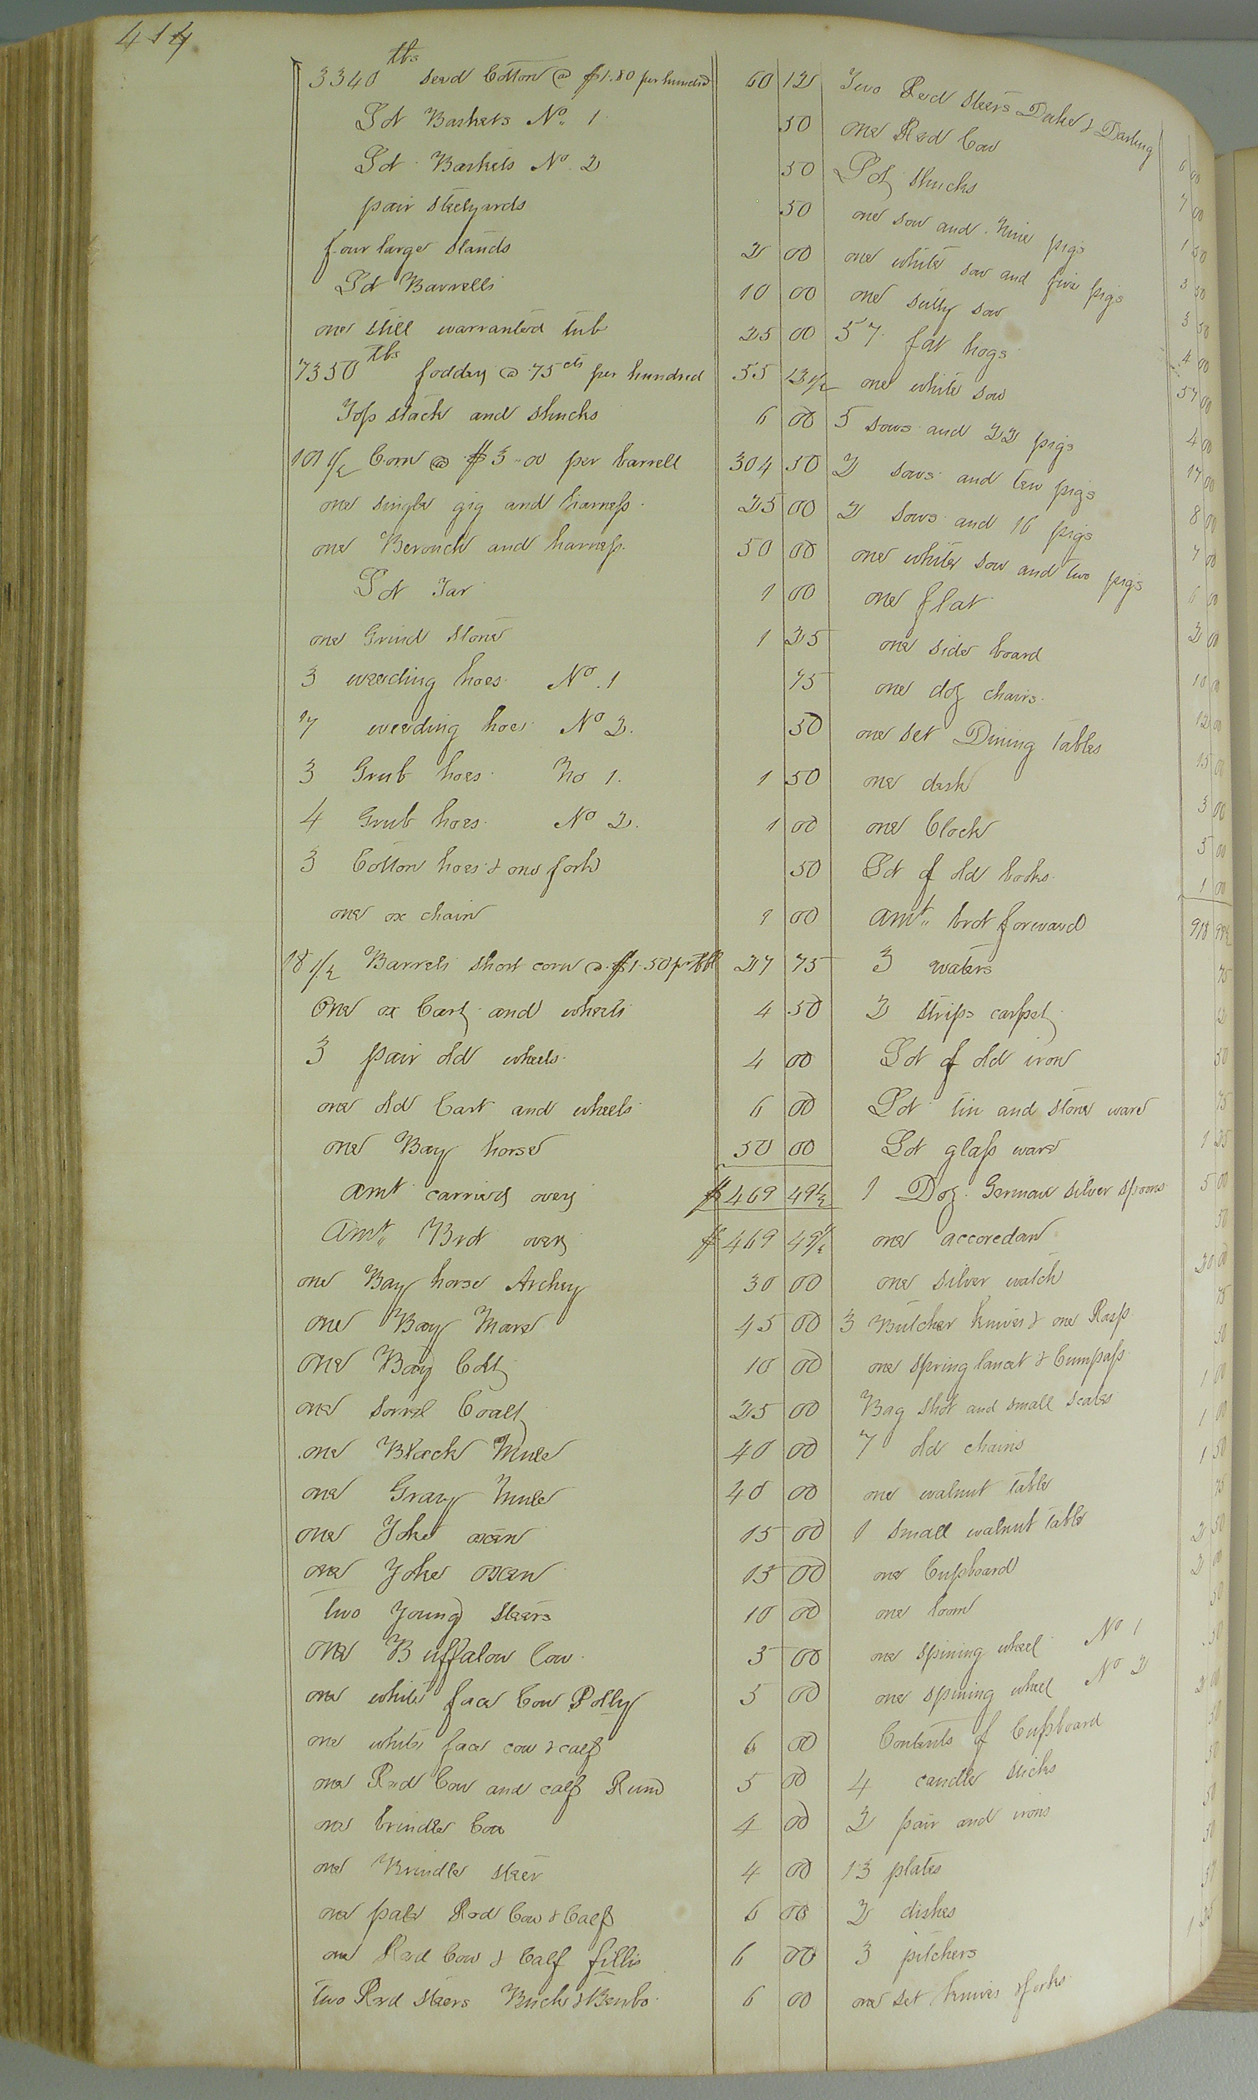 414
3340 lbs seed Cotton @ $1.80 per hundred 60 12
Lot Baskets No. 1 50
Lot Baskets No. 2 50
pair steelyards 50
four large stands 2 00
Lot Barrells 10 00
one still warranted tub 25 00
7350 lbs foddey @ 75 cts per hundred 55 12 1/2
Tops stack and shucks 6 00
101 1/2 Corn @ $3-00 per barrell 304 50
one single gig and harness 25 00
one Berouch and harness 50 00
Lot Tar 1 00
one Grind stone 1 25
3 weeding hoes No. 1 75
7 weeding hoes No 2. 50
3 Grub hoes No 1. 1 50
4 Grub hoes No 2. 1 00
3 Cotton hoes & one fork 50
one ox chain 1 00
18 1/2 Barrels short corn @ $1.50 pr bbl 27 75
One ox Cart and wheels 4 50
3 pair old wheels 4 00
one old Cart and wheels 6 00
one Bay horse 50 00
amt carried over $469 49 1/2
Amt Brot over $469 49 1/2
one Bay horse Archey 30 00
one Bay Mare 45 00
one Bay Colt 10 00
one sorrel Coalt 25 00
one Black Mule 40 00
one Gray Mule 40 00
one Yoke oxen 15 00
one Yoke oxen 15 00
two Young steers 10 00
one Buffalow Cow 5 00
one white face Cow Polly 5 00
one white face cow & calf 6 00
one Red Cow and calf 5 00
one brindle Cow 4 00
one Brindle steer 4 00
one pale Red Cow & Calf 6 00
one Red Cow & Calf fillis 6 00
two Red steers Buck & 6 00
Two Red steers Duke & Darling 6 00
one Red Cow 7 00
Lot shucks 1 50
one sow and Nine pigs 3 50
one white sow and five pigs 3 50
one sow 4 00
57 fat hogs 57 00
one white sow 4 00
5 sows and 22 pigs 17 00
2 sows and ten pigs 8 00
2 sows and 16 pigs 7 00
one white sow and two pigs 6 00
one flat 2 00
one side board 10 00
one doz chairs 12 00
one set Dining tables 15 00
one desk 3 00
one Clock 5 00
Lot of old books 1 00
amt brot forward 918
3 waters 75
2 strips carpet
Lot of old iron 50
Lot tin and stone ware 75
Lot glass ware 1 25
1 Doz German silver spoons 5 00
one accoredan 50
one silver watch 20 00
3 Butcher knives & one Rasp 75
one spring lancet & Cumpass 50
Bag shot and small scales 1 00
7 old chains 1 00
one walnut table 1 50
1 small walnut table 75
one Cupboard 2 50
one loom 2 00
one spining wheel No 1 50
one spining wheel No 2 50
Contents of Cupboard 2 00
4 candle sticks 50
2 pair and irons 50
13 plates 50
2 dishes 50
3 pitchers 50
one set knives & forks 1 25